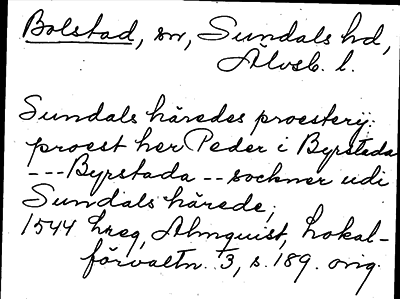 Bolstad, sn, Sundals hd,
Älvsb. l.
Sundals häredes proestery:
proest her Peder i Byrsteda
--- Byrstada -- sockner udi
Sundals härede;
1544 hreg, Almquist, Lokal-
förvaltn. 1/3, s. 189. orig.